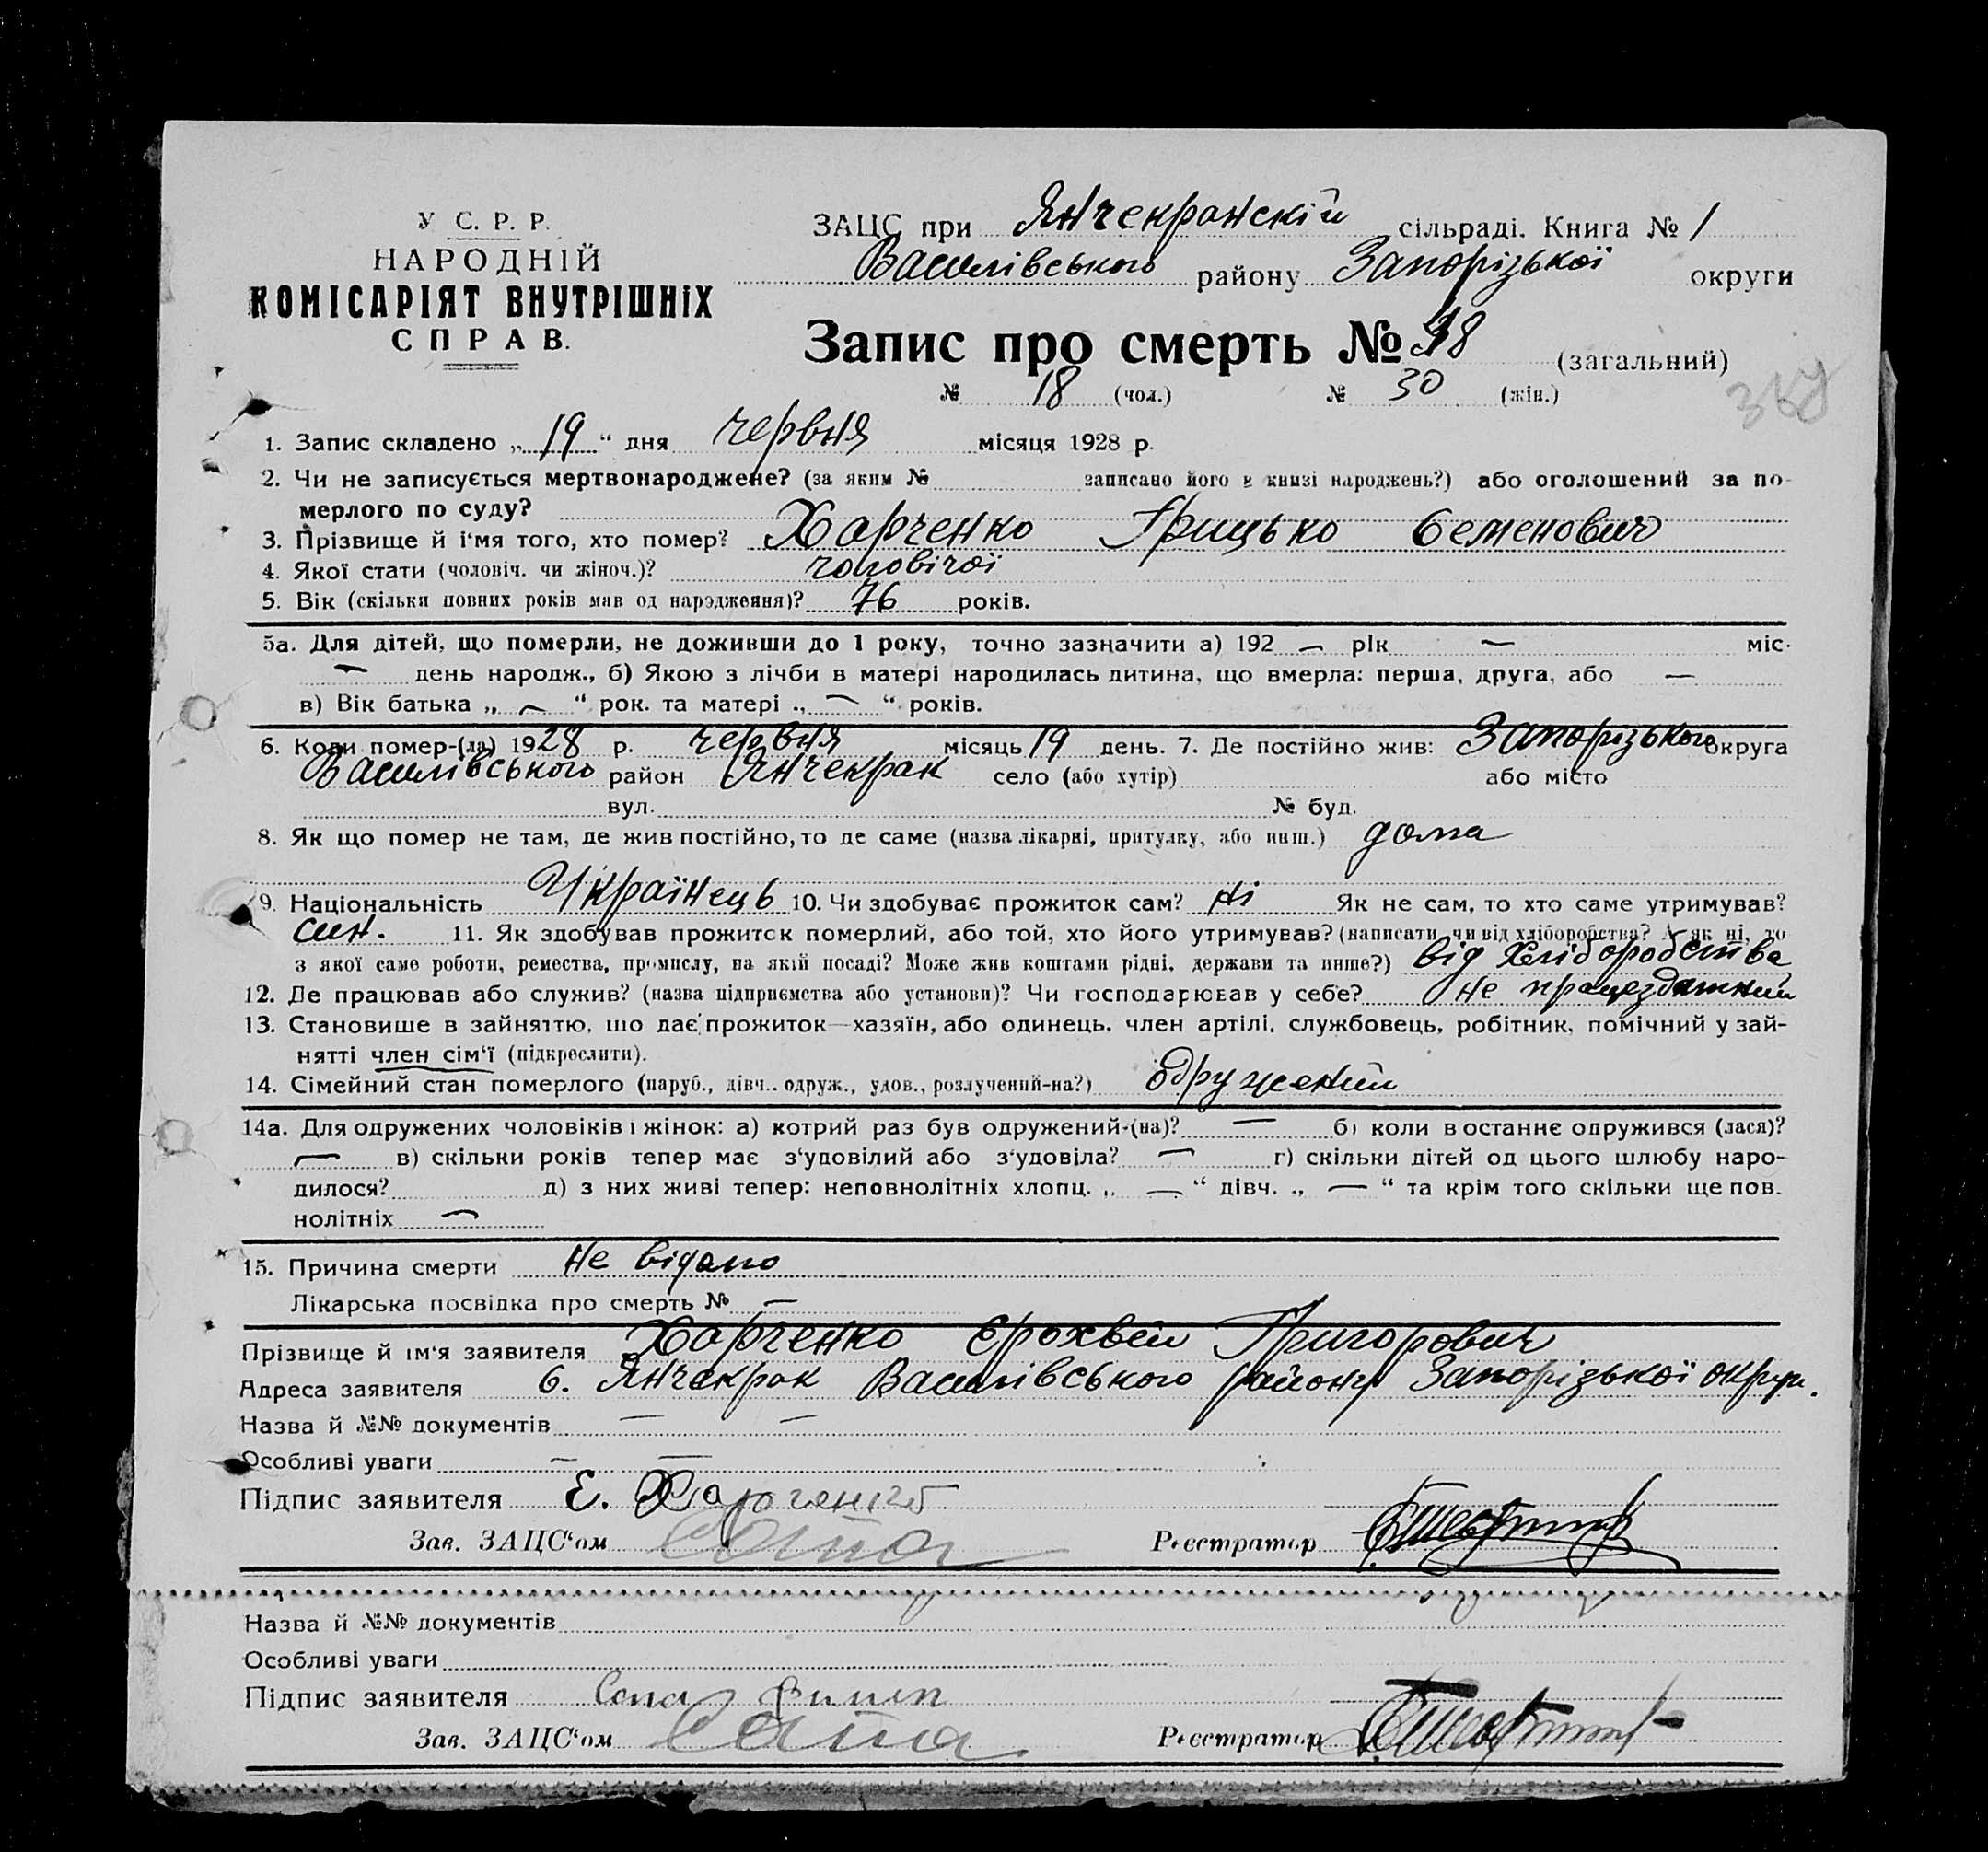 У С. Р. Р.
НАРОДНІЙ
КОМІСАРІЯТ ВНУТРІШНІХ
СПРАВ.
ЗАЦС при Янчекракскій сільраді. Книга № 1
Василівського району Запорізької округи
Запис про смерть № 38 (загальний)
№ 18 (чол.) № 30 (жін.)
1. Запис складено „ 19 “ дня червня місяця 1928 р.
2. Чи не записується мертвонароджене? (за яким № записано його в книзі народжень?) або оголошений за по-
мерлого по суду?
3. Прізвище й і‘мя того, хто помер? Харченко Грицько Семенович
4. Якої стати (чоловіч. чи жіноч.)? чоловічої
5. Вік (скільки повних років мав од народження)? 76 років.
5а. Для дітей, що померли, не доживши до 1 року, точно зазначити а) 192 — рік — міс.
— день народж., б) Якою з лічби в матері народилась дитина, що вмерла: перша, друга, або —
в) Вік батька „ — “ рок. та матері „ — “ років.
6. Коли помер-(ла) 1928 р. червня місяць 19 день. 7. Де постійно жив: Запорізького округа
Василівського район Янчекрак село (або хутір) або місто
вул. № буд.
8. Як що помер не там, де жив постійно, то де саме (назва лікарні, притулку, або инш.) дома
9. Національність Українець 10. Чи здобуває прожиток сам? ні Як не сам, то хто саме утримував?
син. 11. Як здобував прожиток померлий, або той, хто його утримував? (написати, чи від хліборобства? А як ні, то
з якої саме роботи, ремества, промислу, на якій посаді? Може жив коштами рідні, держави та инше?) від хліборобства
12. Де працював або служив? (назва підприємства або установи)? Чи господарював у себе? не працездатний
13. Становище в зайняттю, що дає прожиток—хазяїн, або одинець, член артілі, службовець, робітник, помічний у зай-
нятті член сім‘ї (підкреслити).
14. Сімейний стан померлого (паруб., дівч., одруж., удов., розлучений-на?) одружений
14а. Для одружених чоловіків і жінок: а) котрий раз був одружений-(на)? — б) коли в останнє одружився (лася)?
— в) скільки років тепер має з‘удовілий або з‘удовіла? — г) скільки дітей од цього шлюбу наро-
дилося? д) з них живі тепер: неповнолітніх хлопц. „ — “ дівч. „ — “ та крім того скільки ще пов.
нолітніх —
15. Причина смерти не відамо
Лікарська посвідка про смерть № —
Прізвище й ім‘я заявителя Харченко Єрохвей Григорович
Адреса заявителя с. Янчекрак Василівського району Запорізької округи.
Назва й №№ документів — —
Особливі уваги — —
Підпис заявителя Е. Харченко
Зав. ЗАЦС‘ом Реєстратор
Назва й №№ документів
Особливі уваги
Підпис заявителя
Зав. ЗАЦС‘ом Реєстратор